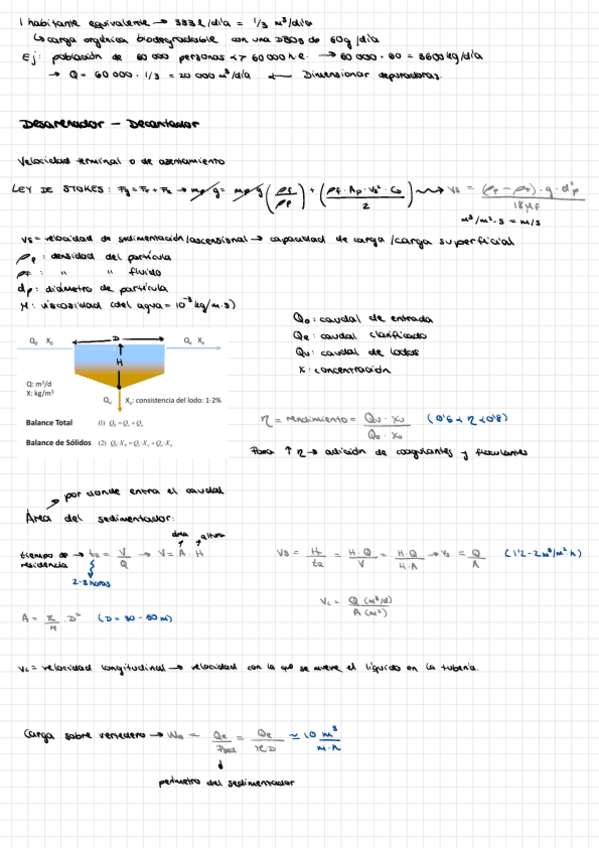 1 habitante equivalente → 333 l/día = 1/3 m³/día
↳ carga orgánica biodegradable con una DBO5 de 60g/día
Ej: población de 60 000 personas <> 60 000 h.e. → 60 000 · 60 = 3600 kg/día
→ Q = 60 000 · 1/3 = 20 000 m³/día ← Dimensionar depuradoras.
Desarenador - Decantador
Velocidad terminal o de asentamiento
LEY DE STOKES: Fg = Fe + Fr → mp g = mp g (ρf/ρp) + (ρf · Ap · Vs² · CD / 2) → Vs = (ρp - ρf) · g · d²p / 18 μf
m³/m² · s = m/s
Vs = velocidad de sedimentación/ascensional → capacidad de carga/carga superficial
ρp : densidad del partícula
ρf : " " fluido
dp : diámetro de partícula
μ : viscosidad (del agua = 10⁻³ kg/m·s)
Qo : caudal de entrada
Qe : caudal clarificado
Qu : caudal de lodos
X : concentración
Q₀ X₀ D Qₑ Xₑ
H
Q: m³/d
X: kg/m³
Qᵤ Xᵤ: consistencia del lodo: 1-2%
Balance Total (1) Q₀ = Qₑ + Qᵤ
Balance de Sólidos (2) Q₀·X₀ = Qₑ·Xₑ + Qᵤ·Xᵤ
η = rendimiento = Qu · Xu / Qo · Xo (0'6 < η < 0'8)
Para ↑ η → adición de coagulantes y floculantes
por donde entra el caudal
Área del sedimentador:
área altura
tiempo de residencia → ta = V/Q → V = A · H
2-3 horas
Vs = H/ta = H·Q/V = H·Q/H·A → Vs = Q/A (1'2 - 2 m³/m²·h)
VL = Q (m³/d) / A (m²)
A = π/4 · D² (D = 30 - 60 m)
VL = velocidad longitudinal → velocidad con la que se mueve el líquido en la tubería.
Carga sobre vertedero → = Qe / = Qe / πD ≃ 10 m³/m·h
perímetro del sedimentador